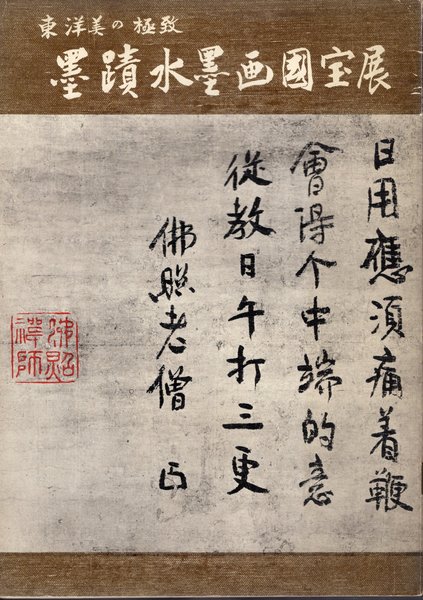 東洋美の極致
墨蹟水墨画國宝展
日用應須痛着鞭
會得个中端的意
從教日午打三更
佛照老僧
佛照
禅師